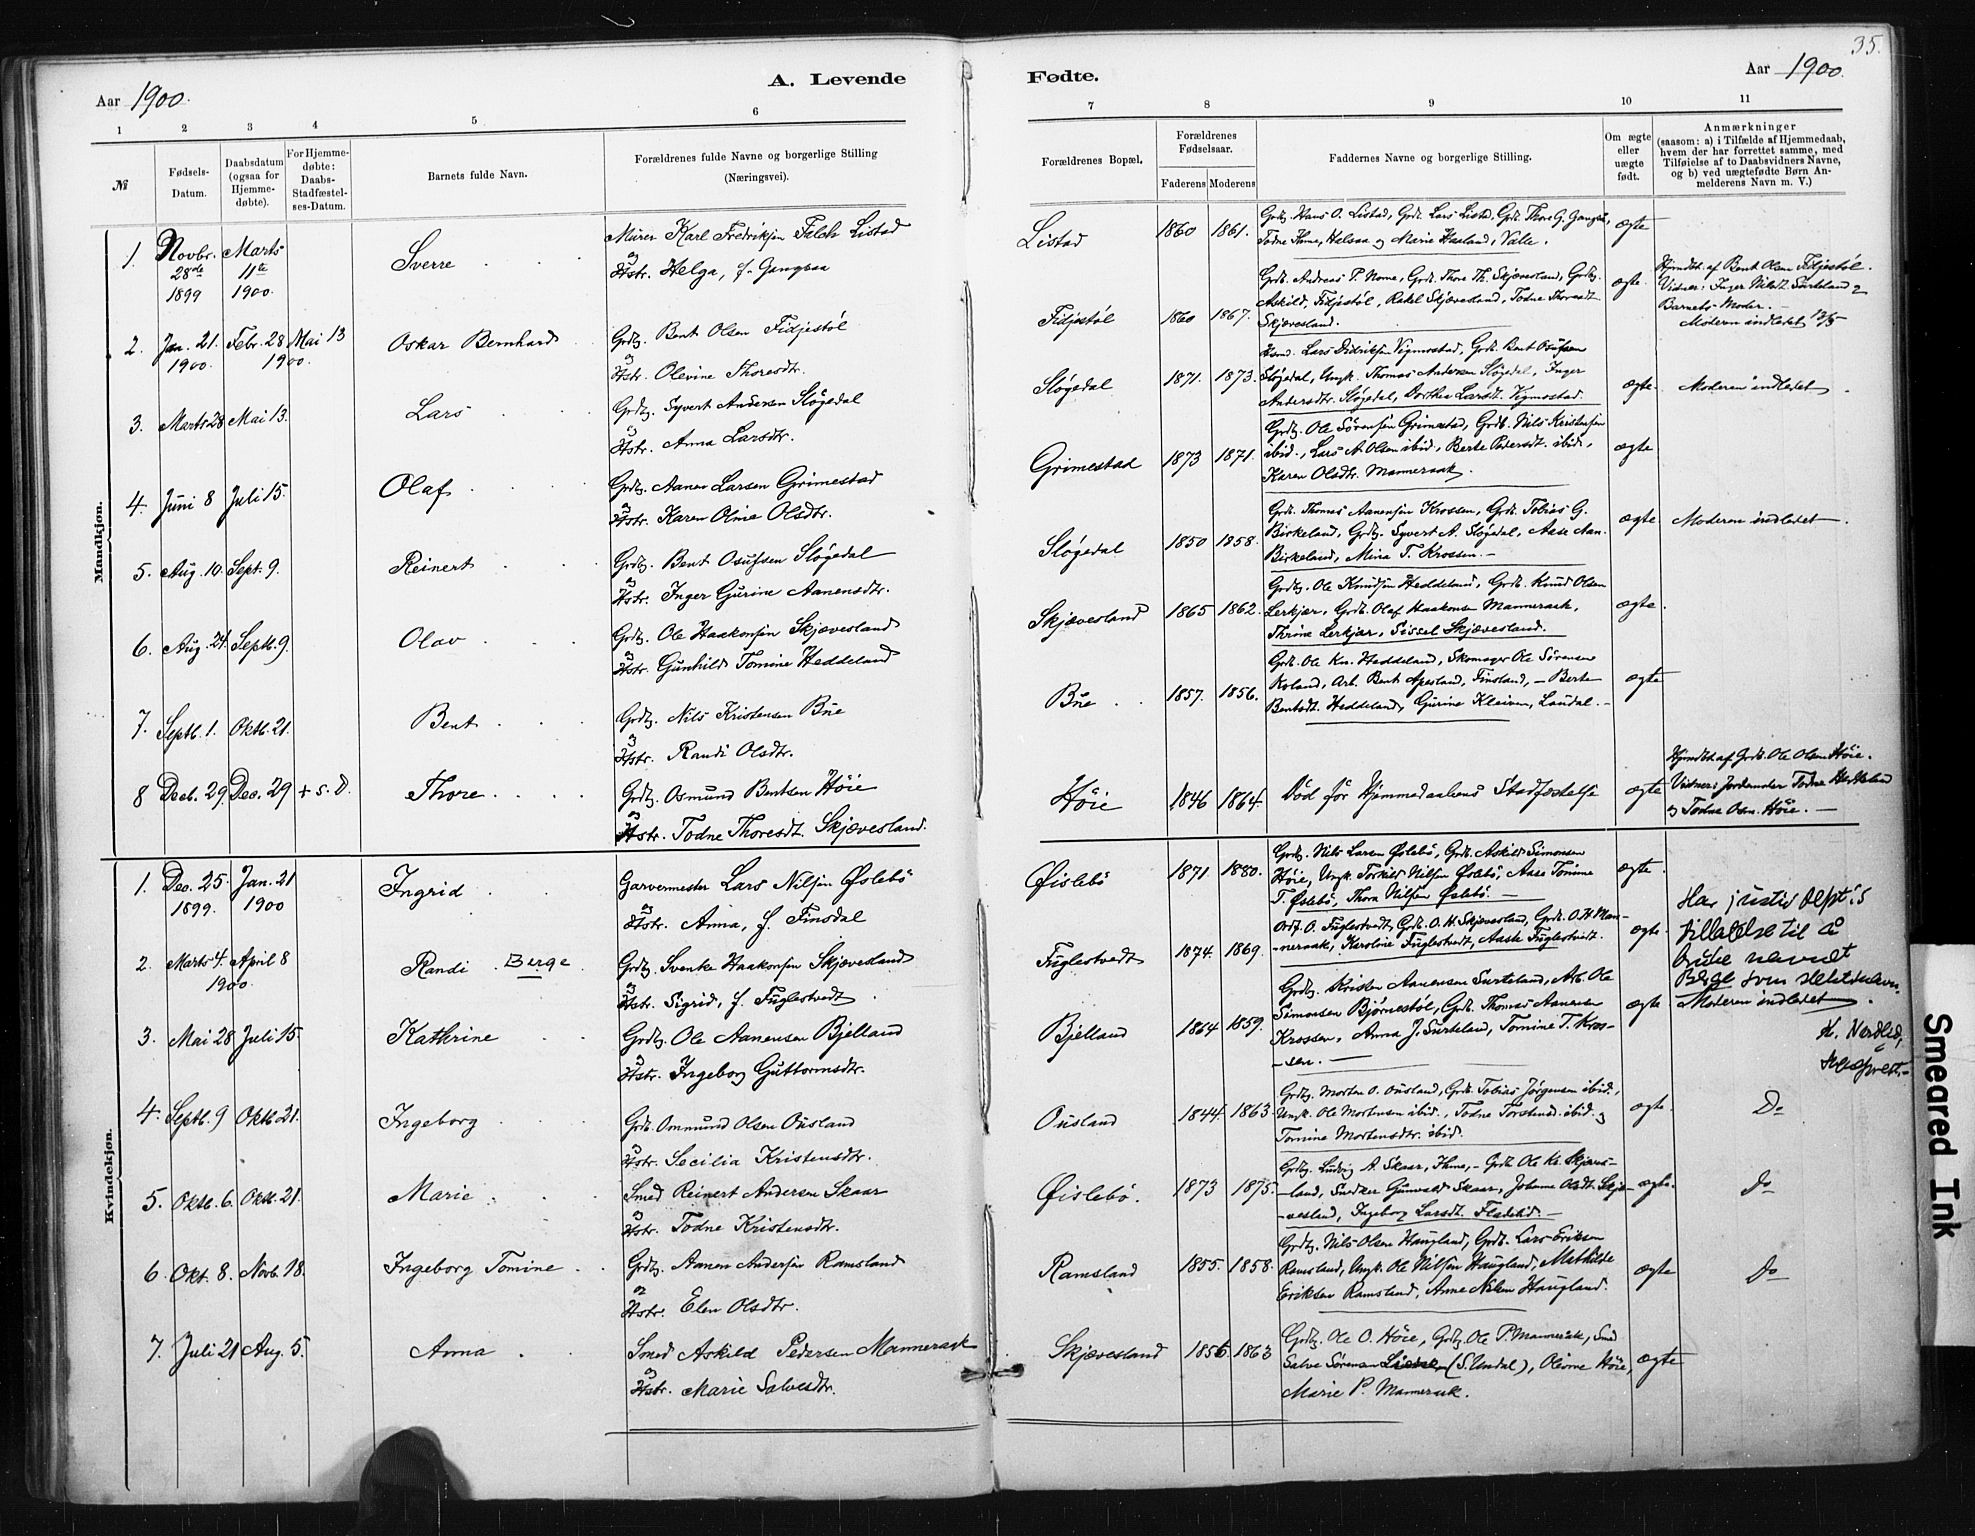 35.
Aar 1900.
A. Levende
Fødte.
Aar 1900.
1 2 3 4 5 6
7 8 9 10 11
№
Fødsels-
Datum.
Daabsdatum
(ogsaa for
Hjemme-
døbte).
For Hjemme-
døbte:
Daabs-
Stadfæstel-
ses-Datum.
Barnets fulde Navn.
Forældrenes fulde Navne og borgerlige Stilling
(Næringsvei).
Forældrenes Bopæl.
Forældrenes
Fødselsaar.
Faderens Moderens
Faddernes Navne og borgerlige Stilling.
Om ægte
eller
uægte
født.
Anmærkninger
(saasom: a) i Tilfælde af Hjemmedaab,
hvem der har forrettet samme, med
Tilføielse af to Daabsvidners Navne,
og b) ved uægtefødte Børn An-
melderens Navn m. V.)
Mandkjøn.
1. Novbr. 28de 1899
Marts 11te 1900.
Sverre
Murer Karl Fredriksen Falch Listad
og Hstr. Helga, f. Gangsaa
Listad
1860 1861.
Grdbg. Hans O. Listad, Grdb. Lars Listad, Grdb. Thore G. Gangsaa,
Todne Thime, Helsaa og Marie Haaland, Valle.
ægte
2. Jan. 21. 1900.
Febr. 28 1900.
Mai 13
Oskar Bernhard
Grdbg. Bent Olsen Fidjestøl
og Hstr. Olevine Thoresdtr.
Fidjestøl
1860 1867.
Grdb. Andreas P. Nome, Grdb. Thore Th. Skjævesland, Grdbg.
Askild, Fidjestøl, Rakel Skjævesland, Todne Thoresdt.
Skjævesland.
ægte
Hjmdbt. af Bent Olsen Fidjestøl.
Vidner: Inger Nilsdt. Surteland og
Barnets Moder. —
Moderen indledet 13/5
3. Marts 28
Mai 13.
Lars
Grdbg. Syvert Andersen Sløgedal
og Hstr. Anna Larsdtr.
Sløgedal
1871. 1873.
Husmd. Lars Didriksen Vigmostad, Grdb. Bent Osufsen
Sløgedal, Ungk. Thomas Andersen Sløgedal, Inger
Andersdtr. Sløgedal, Dorthea Larsdt. Vigmostad.
ægte.
Moderen indledet
4. Juni 8
Juli 15.
Olaf
Grdbg. Aanen Larsen Grimestad
og Hstr. Karen Oline Olsdtr.
Grimestad
1873 1871.
Grdbg. Ole Sørensen Grimestad, Grdb. Nils Kristensen
ibid., Lars A. Olsen ibid., Berte Pedersdt. ibid.,
Karen Olsdtr. Manneraak.
ægte
5. Aug. 10.
Sept. 9.
Reinert
Grdbg. Bent Osufsen Sløgedal
og Hstr. Inger Gurine Aanensdtr.
Sløgedal
1850 1858.
Grdb. Thomas Aanensen Krossen, Grdb. Tobias G.
Birkeland, Grdbg. Syvert A. Sløgedal, Aase Aan.
Birkeland, Mina T. Krossen. —
ægte
Moderen indledet
6. Aug. 24.
Septb. 9.
Olav
Grdbg. Ole Haakonsen Skjævesland
og Hstr. Gunhild Tomine Heddeland
Skjævesland
1865 1862.
Grdbg. Ole Knudsen Heddeland, Grdb. Knud Olsen
Lerkjær, Grdb. Olaf Haakonsen Manneraak,
Thrine Lerkjær, Sissel Skjævesland.
ægte.
7. Septb. 1.
Oktb. 21.
Bent
Grdbg. Nils Kristensen Bue
og Hstr. Randi Olsdtr.
Bue
1857. 1856.
Grdb. Ole Kn. Heddeland, Skomager Ole Sørensen
Roland, Arb. Bent Apesland, Finsland, — Berte
Bentsdt. Heddeland, Gurine Kleiven, Laudal. —
ægte
8 Decb. 29.
Dec. 29
+ s. D.
Thore
Grdbg. Osmund Bentsen Höie
og Hstr. Todne Thoresdt. Skjævesland.
Höie
1846 1864.
Død før Hjemmedaabens Stadfæstelse
ægte
Hjmdbt. af Grdb. Ole Olsen Höie.
Vidner: Jordemoder Todne Heddeland
og Todne Osm. Höie. —
Kvindekjøn.
1. Dec. 25. 1899.
Jan. 21 1900
Ingrid
Garvermester Lars Nilsen Øslebö
og Hstr. Anna, f. Finsdal
Øislebö
1871. 1880.
Grdbg. Nils Larsen Øslebö, Grdb. Askild Simonsen
Höie, Ungk. Torkild Nilsen Øslebö, Aase Tomine
T. Øslebö, Thora Nilsen Øslebö. —
ægte.
2. Marts 4. 1900.
April 8
Randi Berge
Grdbg. Svenke Haakonsen Skjævesland
og Hstr. Sigrid, f. Fuglestvedt
Fuglestvedt
1874. 1869.
Ordf. O. Fuglestvedt, Grdb. O. H. Skjævesland, Grdb. O. H. Man-
neraak, Karoline Fuglestvedt, Aaste Fuglestvedt.
ægte.
Har justisdept.s
tillatelse til å
bruke navnet
Berge som slektsnavn.
3. Mai 28
Juli 15.
Kathrine
Grdbg. Ole Aanensen Bjelland
og Hstr. Ingeborg Guttormsdtr.
Bjelland
1864 1859.
Grdbg. Kristen Aanensen Surteland, Arb. Ole
Simonsen Bjørnestøl, Grdb. Thomas Aanensen
Krossen, Anna J. Surteland, Tomine T. Kros-
sen. —
ægte
Moderen indledet
4. Septb. 9
Oktb. 21.
Ingeborg
Grdb. Ommund Olsen Ousland
og Hstr. Secilia Kristensdtr.
Ousland
1844. 1863.
Grdbg. Morten O. Ousland, Grdb. Tobias Jørgensen ibid.,
Ungk. Ole Mortensen ibid., Todne Torstensd. ibid. og
Tomine Mortensdtr. ibid.
ægte
Do
5. Oktb. 6.
Oktb. 21.
Marie
Smed Reinert Andersen Skaar
og Hstr. Todne Kristensdtr.
Øislebö.
1873 1875.
Grdbg. Ludvig A. Skaar, Thime, — Grdb. Ole Kr. Skjæves-
land, Snedker Gunvald Skaar, Johanne Olsdt. Skjæ-
vesland, Ingeborg Larsdt.
ægte.
Do
6. Okt. 8.
Novb. 18.
Ingeborg Tomine
Grdbg. Aanen Andersen Ramsland
og Hstr. Elen Olsdtr.
Ramsland
1855. 1858.
Grdbg. Nils Olsen Haugland, Grdb. Lars Eriksen
Ramsland, Ungk. Ole Nilsen Haugland, Mathilde
Eriksen Ramsland, Anne Nilsen Haugland.
ægte
Do
7. Juli 21
Aug. 5.
Anna
Smed Askild Pedersen Manneraak
og Hstr. Marie Salvesdtr.
Skjævesland
1856. 1863
Grdbg. Ole O. Höie, Grdbg. Ole P. Manneraak, Smed
Salve Sørensen (S. Undal), Olevine Höie,
Marie P. Manneraak.
ægte
Smeared Ink